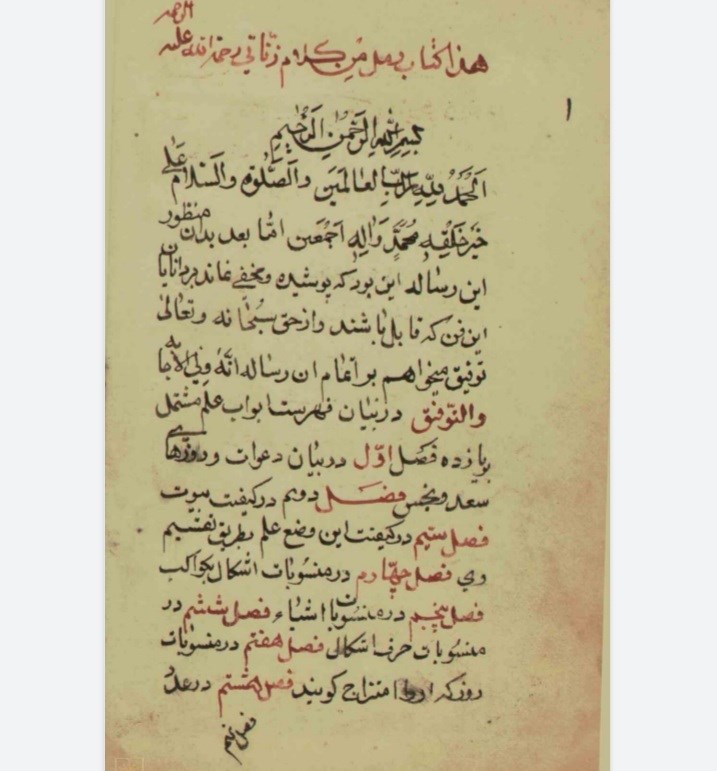 هذا کتاب رمل من کلام زناتی رحمة الله علیه
١
بسم الله الرحمن الرحیم
الحمد لله رب العالمین والصلوة والسلام علی
خیر خلقه محمد واله اجمعین اما بعد بدان منظور
این رساله این بود که پوشیده ومخفی نماند بر دانایان
این فن که قابل باشند واز حق سبحانه وتعالی
توفیق میخواهم بر اتمام ان رساله انه ولی الاجابه
والتوفیق در بیان فهرست ابواب علم مشتمل
بر یازده فصل اول در بیان دعوات وروزهای
سعد ونحس فصل دویم در کیفیت بیوت
فصل سیم در کیفیت این وضع علم بطریق تقسیم
وی فصل چهارم در منسوبات اشکال بکواکب
فصل پنجم در منسوبات اشیاء فصل ششم در
منسوبات حرف اشکالی فصل هفتم در منسوبات
روز که امتزاج کویند فصل هشتم در عدد
فصل نهم